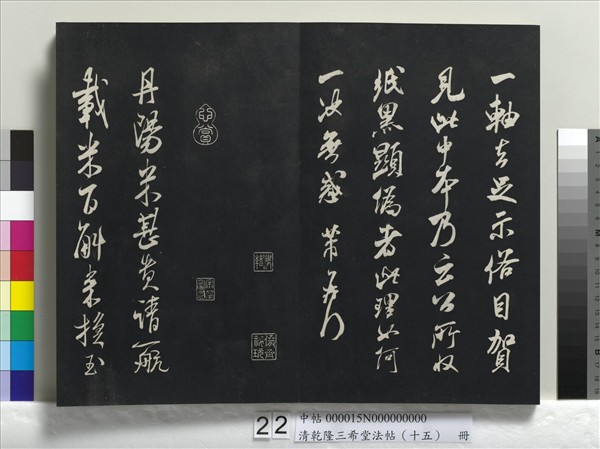 一軸去足示俗目賀
見此中本乃云公所收
紙黑顯偽者此理如何
一決無惑 芾頓首
丹陽米甚貴請一航
載米百斛來換玉
22
中帖 000015N000000000
清乾隆三希堂法帖（十五） 冊